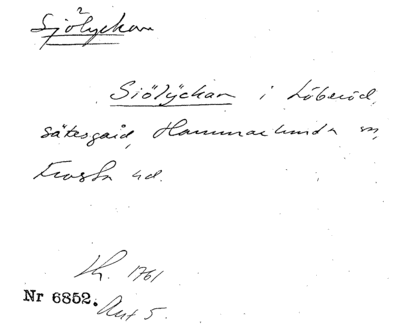 Sjölyckan
Sjölÿckan i Löberöd,
sätesgård, Hammarlunda sn,
Frosta hd.
Lh. 1761
Nr 6852. Akt 5.